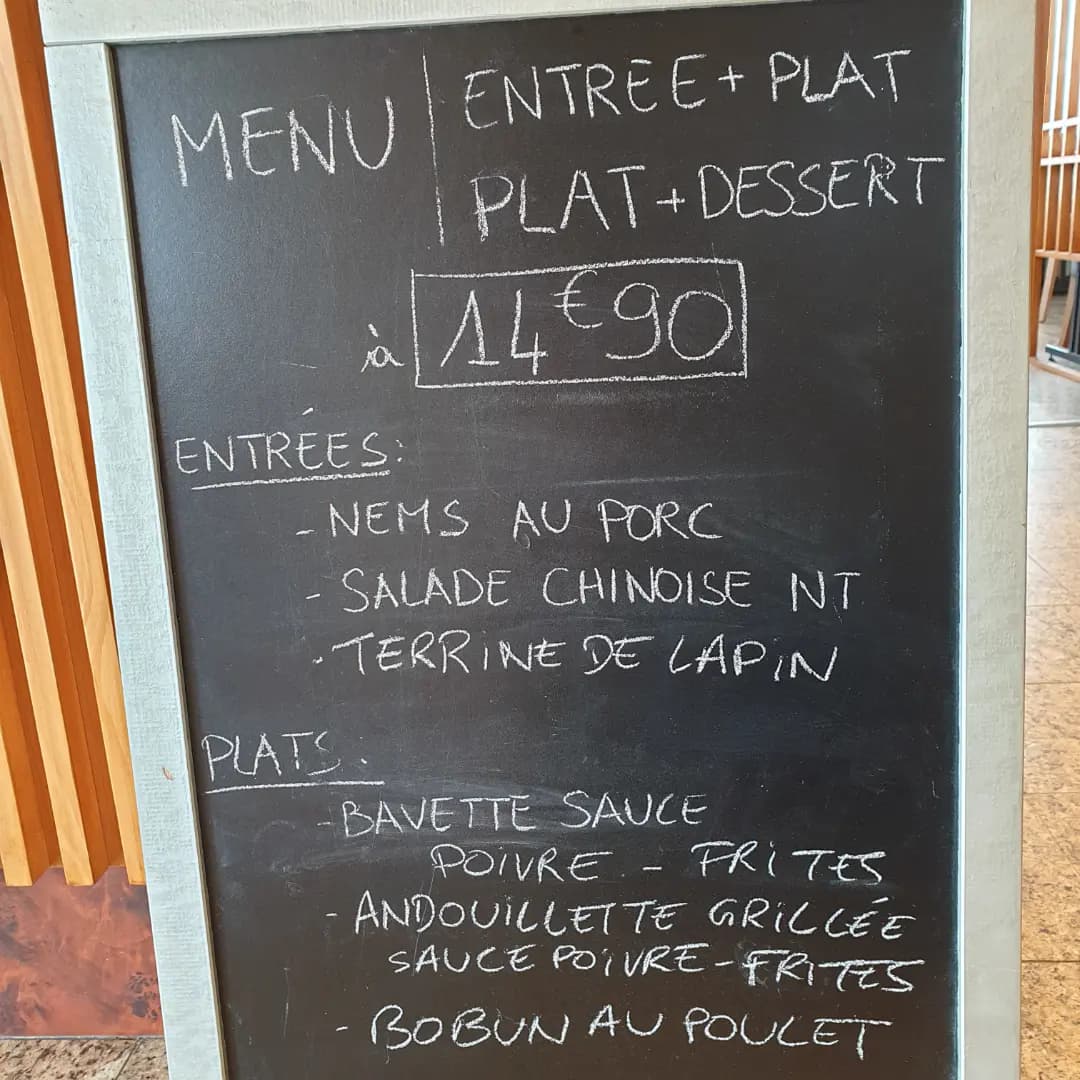 MENU
ENTREE + PLAT
PLAT + DESSERT
à 14€90
ENTRÉES:
- NEMS AU PORC
- SALADE CHINOISE NT
- TERRINE DE LAPIN
PLATS:
- BAVETTE SAUCE
POIVRE - FRITES
- ANDOUILLETTE GRILLÉE
SAUCE POIVRE - FRITES
- BOBUN AU POULET